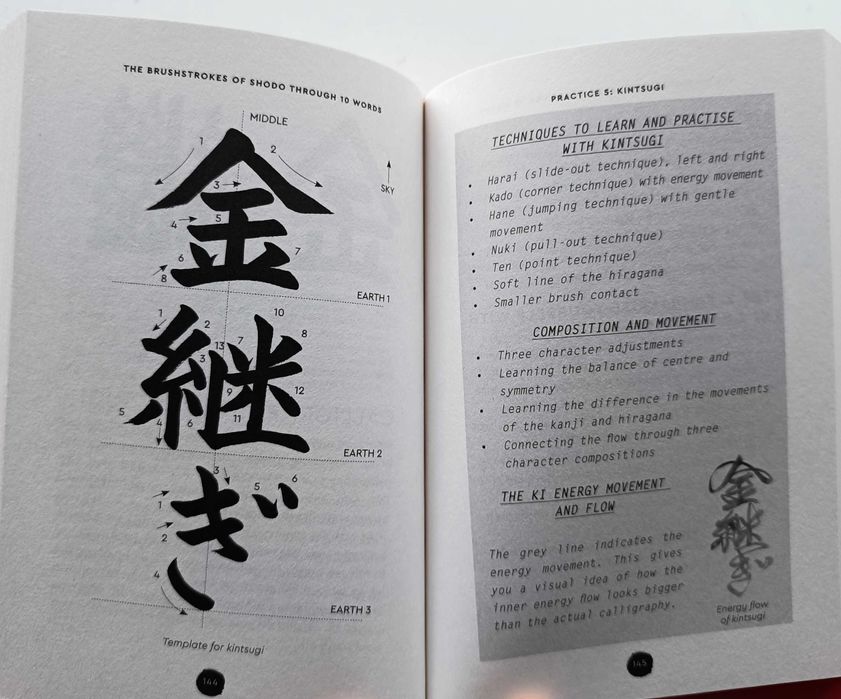 THE BRUSHSTROKES OF SHODO THROUGH 10 WORDS
MIDDLE
1
2
3
SKY
金
4
5
6
7
8
EARTH 1
継
1
2
3
4
5
6
7
8
9
10
11
12
13
EARTH 2
ぎ
1
2
3
4
5
6
EARTH 3
Template for kintsugi
144
PRACTICE 5: KINTSUGI
TECHNIQUES TO LEARN AND PRACTISE
WITH KINTSUGI
• Harai (slide-out technique), left and right
• Kado (corner technique) with energy movement
• Hane (jumping technique) with gentle
movement
• Nuki (pull-out technique)
• Ten (point technique)
• Soft line of the hiragana
• Smaller brush contact
COMPOSITION AND MOVEMENT
• Three character adjustments
• Learning the balance of centre and
symmetry
• Learning the difference in the movements
of the kanji and hiragana
• Connecting the flow through three
character compositions
THE KI ENERGY MOVEMENT
AND FLOW
The grey line indicates the
energy movement. This gives
you a visual idea of how the
inner energy flow looks bigger
than the actual calligraphy.
金
継
ぎ
Energy flow
of kintsugi
145